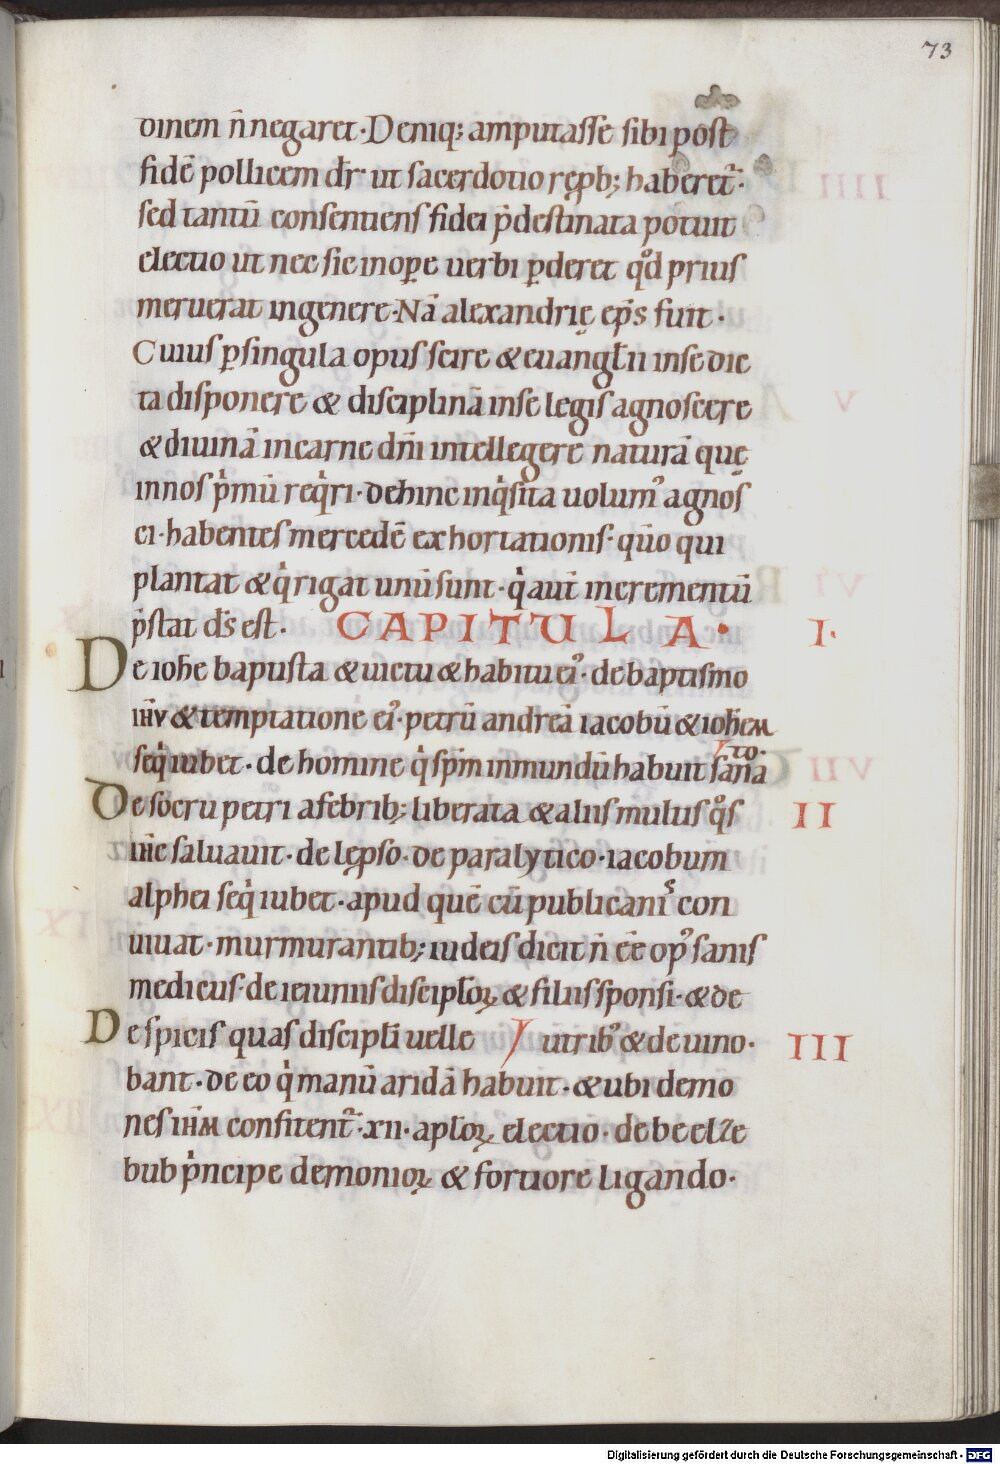 73
dinem n̄ negaret · Deniq; amputasse sibi post
fidē pollicem dr̄ · ut sacerdotio rep̱b; haberet᷑ ·
sed tantū consentiens fidei p̄destinata potuit
electio ut nec sic in op̱e uerbi p̱deret qd̊ prius
meruerat in genere · Nā alexandrię ep̄s fuit ·
Cuius p̱ singula opus scire & euangl̄ii in se dic
ta disponere & disciplinā in se legis agnoscere
& diuinā in carne dn̄i intellegere naturā quę
in nos p̍mū req̍ri · dehinc inq̍sita uolum᾿ agnos
ci · habentes mercedē exhortationis · qūo qui
plantat & q̍ rigat unū sunt · q̍ aut̄ incrementū
p̍stat d̄s est · CAPITULA · I ·
De ioh̄e baptista & uictu & habitu ei᾿ · de baptismo
ih̄v & temptatione ei᾿ · petrū andreā iacobū & ioh̄em
seq̍ iubet · de homine q̍ sp̄m inmundū habuit sana
to ·
De socru petri a febrib; liberata & aliis multis qo̊s II
ih̄c saluauit · de lep̱so · de paralytico · iacobum
alphei seq̍ iubet · apud quē cū publicanis con
uiuat · murmurantib; iudeis dicit n̄ ēē op᾿ sanis
medicus · de ieiuniis discipl̄oꝝ & filiis sponsi · & de
De spicis quas discipl̄i uelle / utrib᾿ & de uino · III
bant · de eo q̍ manū aridā habuit · & ubi demo
nes ih̄m confitent᷑ · xii · apl̄oꝝ electio · de beelze
bub p̍ncipe demonioꝝ & fortiore ligando ·
Digitalisierung gefördert durch die Deutsche Forschungsgemeinschaft - DFG